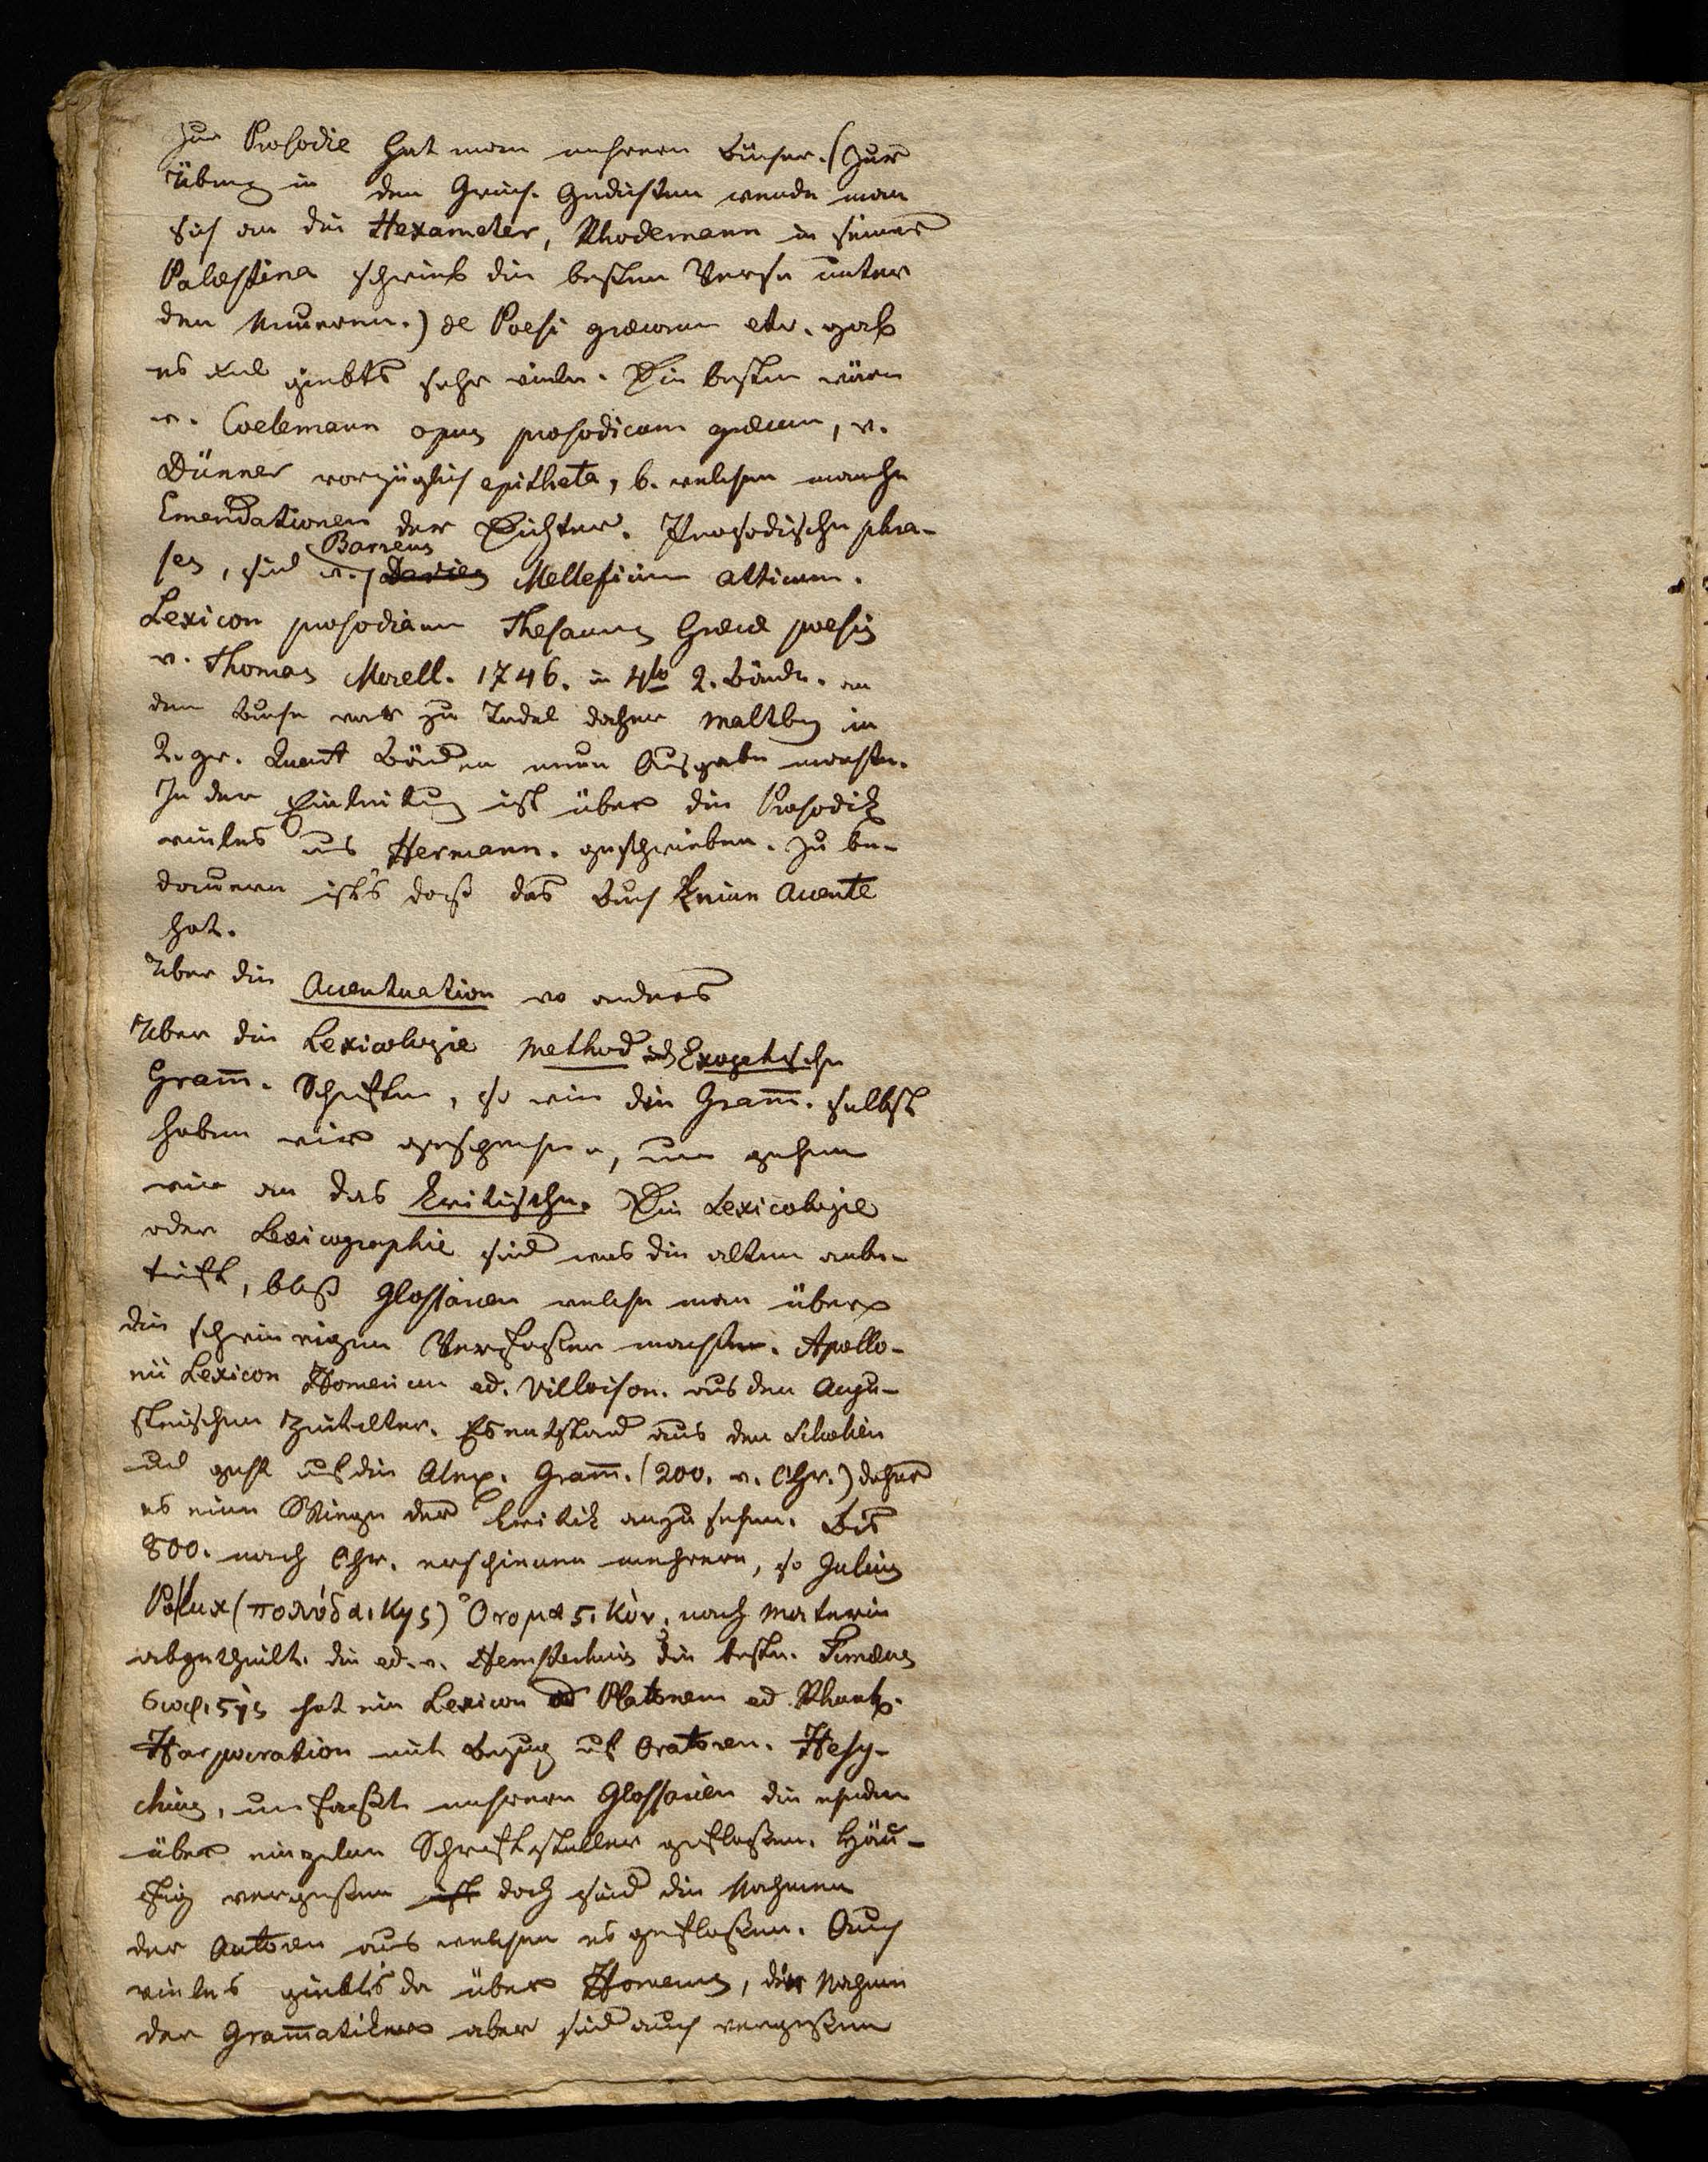 Zur Prosodie hat man mehrere Bücher. (Zur
Übung in den Griech. Gedichten wende man
sich an die Hexameter, Rhodemann in seiner
Palæstina schrieb die besten Verse unter
den Neueren.) de Poesi græcorum etc. gab
es und giebts sehr viele. Die besten wären
v. Coelemann opus prosodicum græcum, v.
Dünner vorzüglich epitheta, b. welchen manche
Emendationen der Dichter. Prosodische phra-
ses, sind v. Barreus Mellificium atticum.
Lexicon prosodiacum Thesaurus Græcæ poesis
v. Thomas Morell. 1746. in 4to 2. Bände. an
dem Buche war zu Tadel daher Maltby in
2. gr. Quart Bänden neue Ausgabe machte.
In der Einleitung ist über die Prosodik
vieles aus Hermann. geschrieben. Zu be-
dauern ists daß das Buch keine Accente
hat.
Über die Accentuation wo anders
Über die Lexicologie Method und Exegetische
Gram̄. Schriften, so wie die Gram̄. selbst
haben wir gesprochen, nun gehen
wir an das kritische. Die Lexicologie
oder Lexicographie sind was die alten anbe-
trifft, bloß Glossarien welche man über
die schwierigen Verfaßer machte. Apollo-
nii Lexicon Homericum ed. Villoison. aus den Augu-
steischen Zeitalter. Es entstand aus den Scholien
und geht auf die Alex. Gram̄. (200. v. Chr.) daher
es eine Wiege der Kritik anzusehen. Bis
800. nach Chr. erschienen mehrere, so Julius
Pollux (πολυδεύκης) Ὀνομαςικὸν, nach Materie
abgetheilt. die ed. v. Hemsterhuis die beste. Timæus
σοφιςὴς hat ein Lexicon ad Platonem ed Rhunk.
Harpocration mit Bezug auf Oratoren. Hesy-
chius, umfaßt mehrere Glossarien die
über einzelne Schriftsteller gefloßen. Häu-
fig vergeßen ist doch sind die Nahmen
der Autoren aus welchen es gefloßen. Auch
vieles giebts da über Homerus, die Nahmen
der Gram̄atiker aber sind auch vergeßen